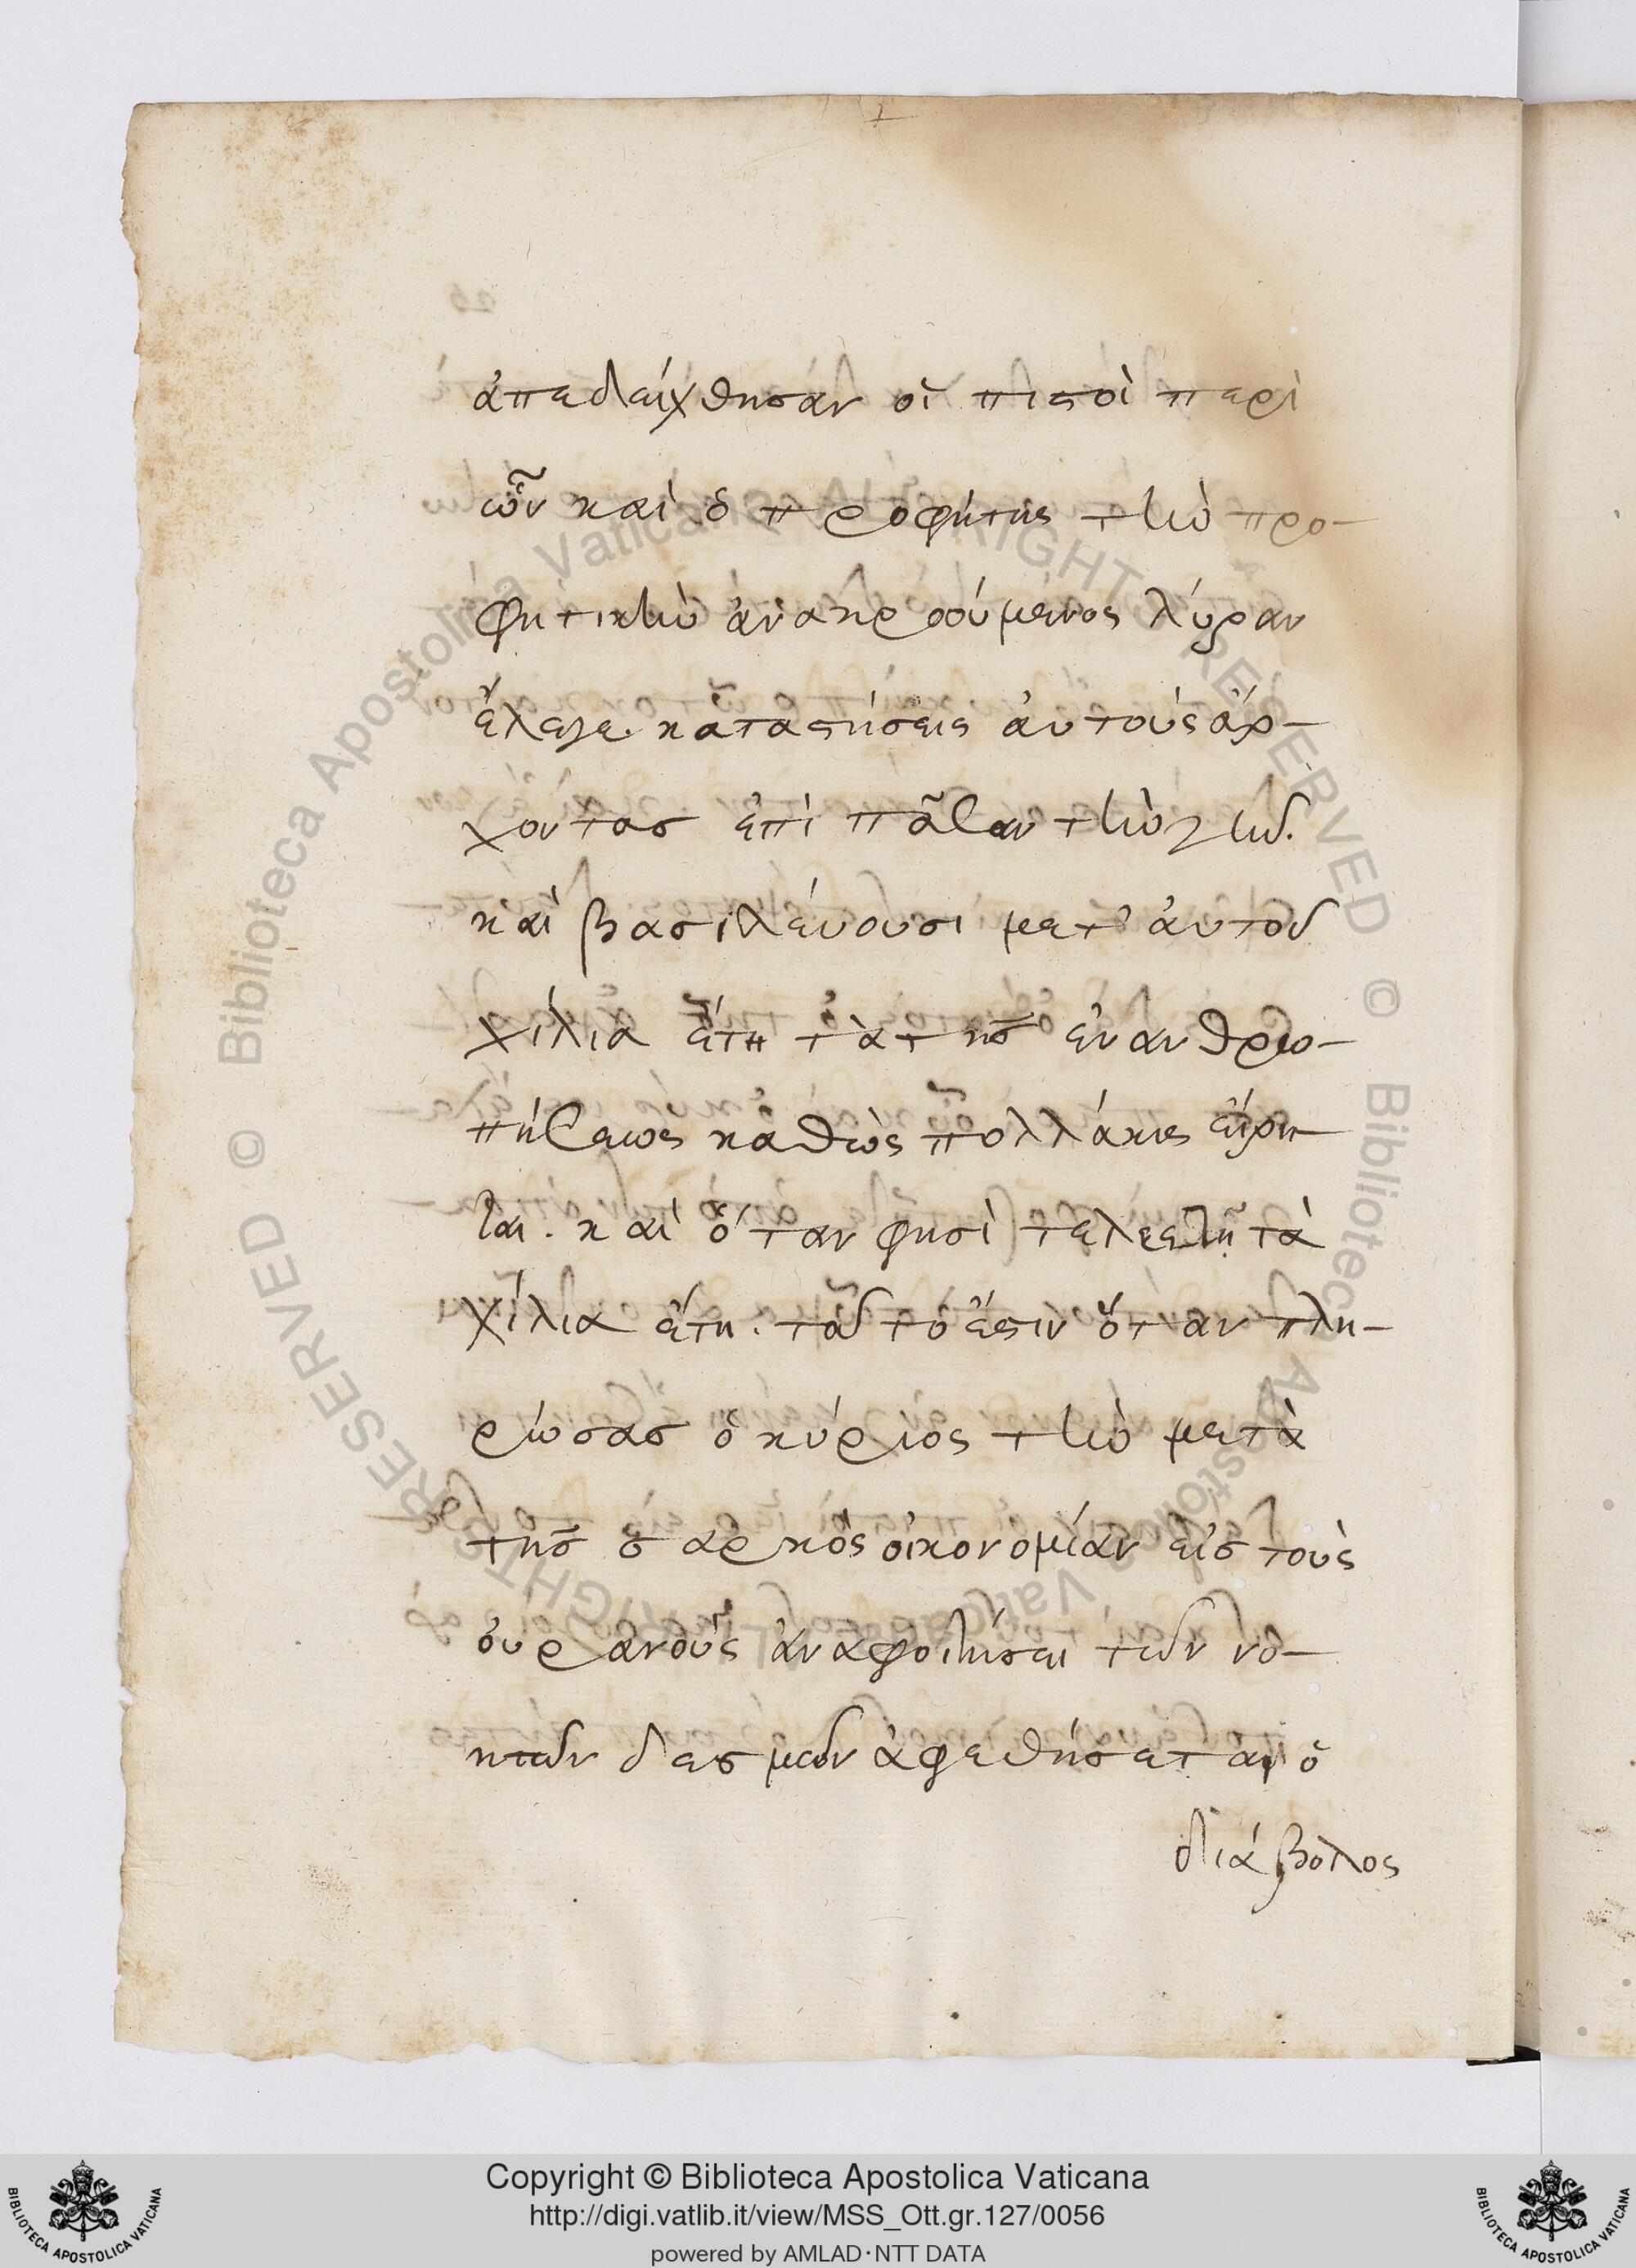 ἀπεδείχθησαν οἱ πιστοὶ περὶ
ὧν καὶ ὁ προφήτης τὴν προ-
φητικὴν ἀνακρουόμενος λύραν
ἔλεγε. καταστήσεις αὐτοὺς ἄρ-
χοντας ἐπὶ πᾶσαν τὴν γῆν.
καὶ βασιλεύουσι μετ' αὐτοῦ
χίλια ἔτη τὰ τῆς ἐνανθρω-
πήσεως καθὼς πολλάκις εἴρη-
ται. καὶ ὅταν φησὶ τελεσθῇ τὰ
χίλια ἔτη. τοῦτό ἐστιν ὅταν πλη-
ρώσας ὁ κύριος τὴν μετὰ
τῆς σαρκὸς οἰκονομίαν εἰς τοὺς
οὐρανοὺς ἀναφοιτήσει τῶν νο-
ητῶν δεσμῶν ἀφεθήσεται ὁ
διάβολος
Copyright © Biblioteca Apostolica Vaticana
http://digi.vatlib.it/view/MSS_Ott.gr.127/0056
powered by AMLAD·NTT DATA
BIBLIOTECA APOSTOLICA VATICANA
BIBLIOTECA APOSTOLICA VATICANA